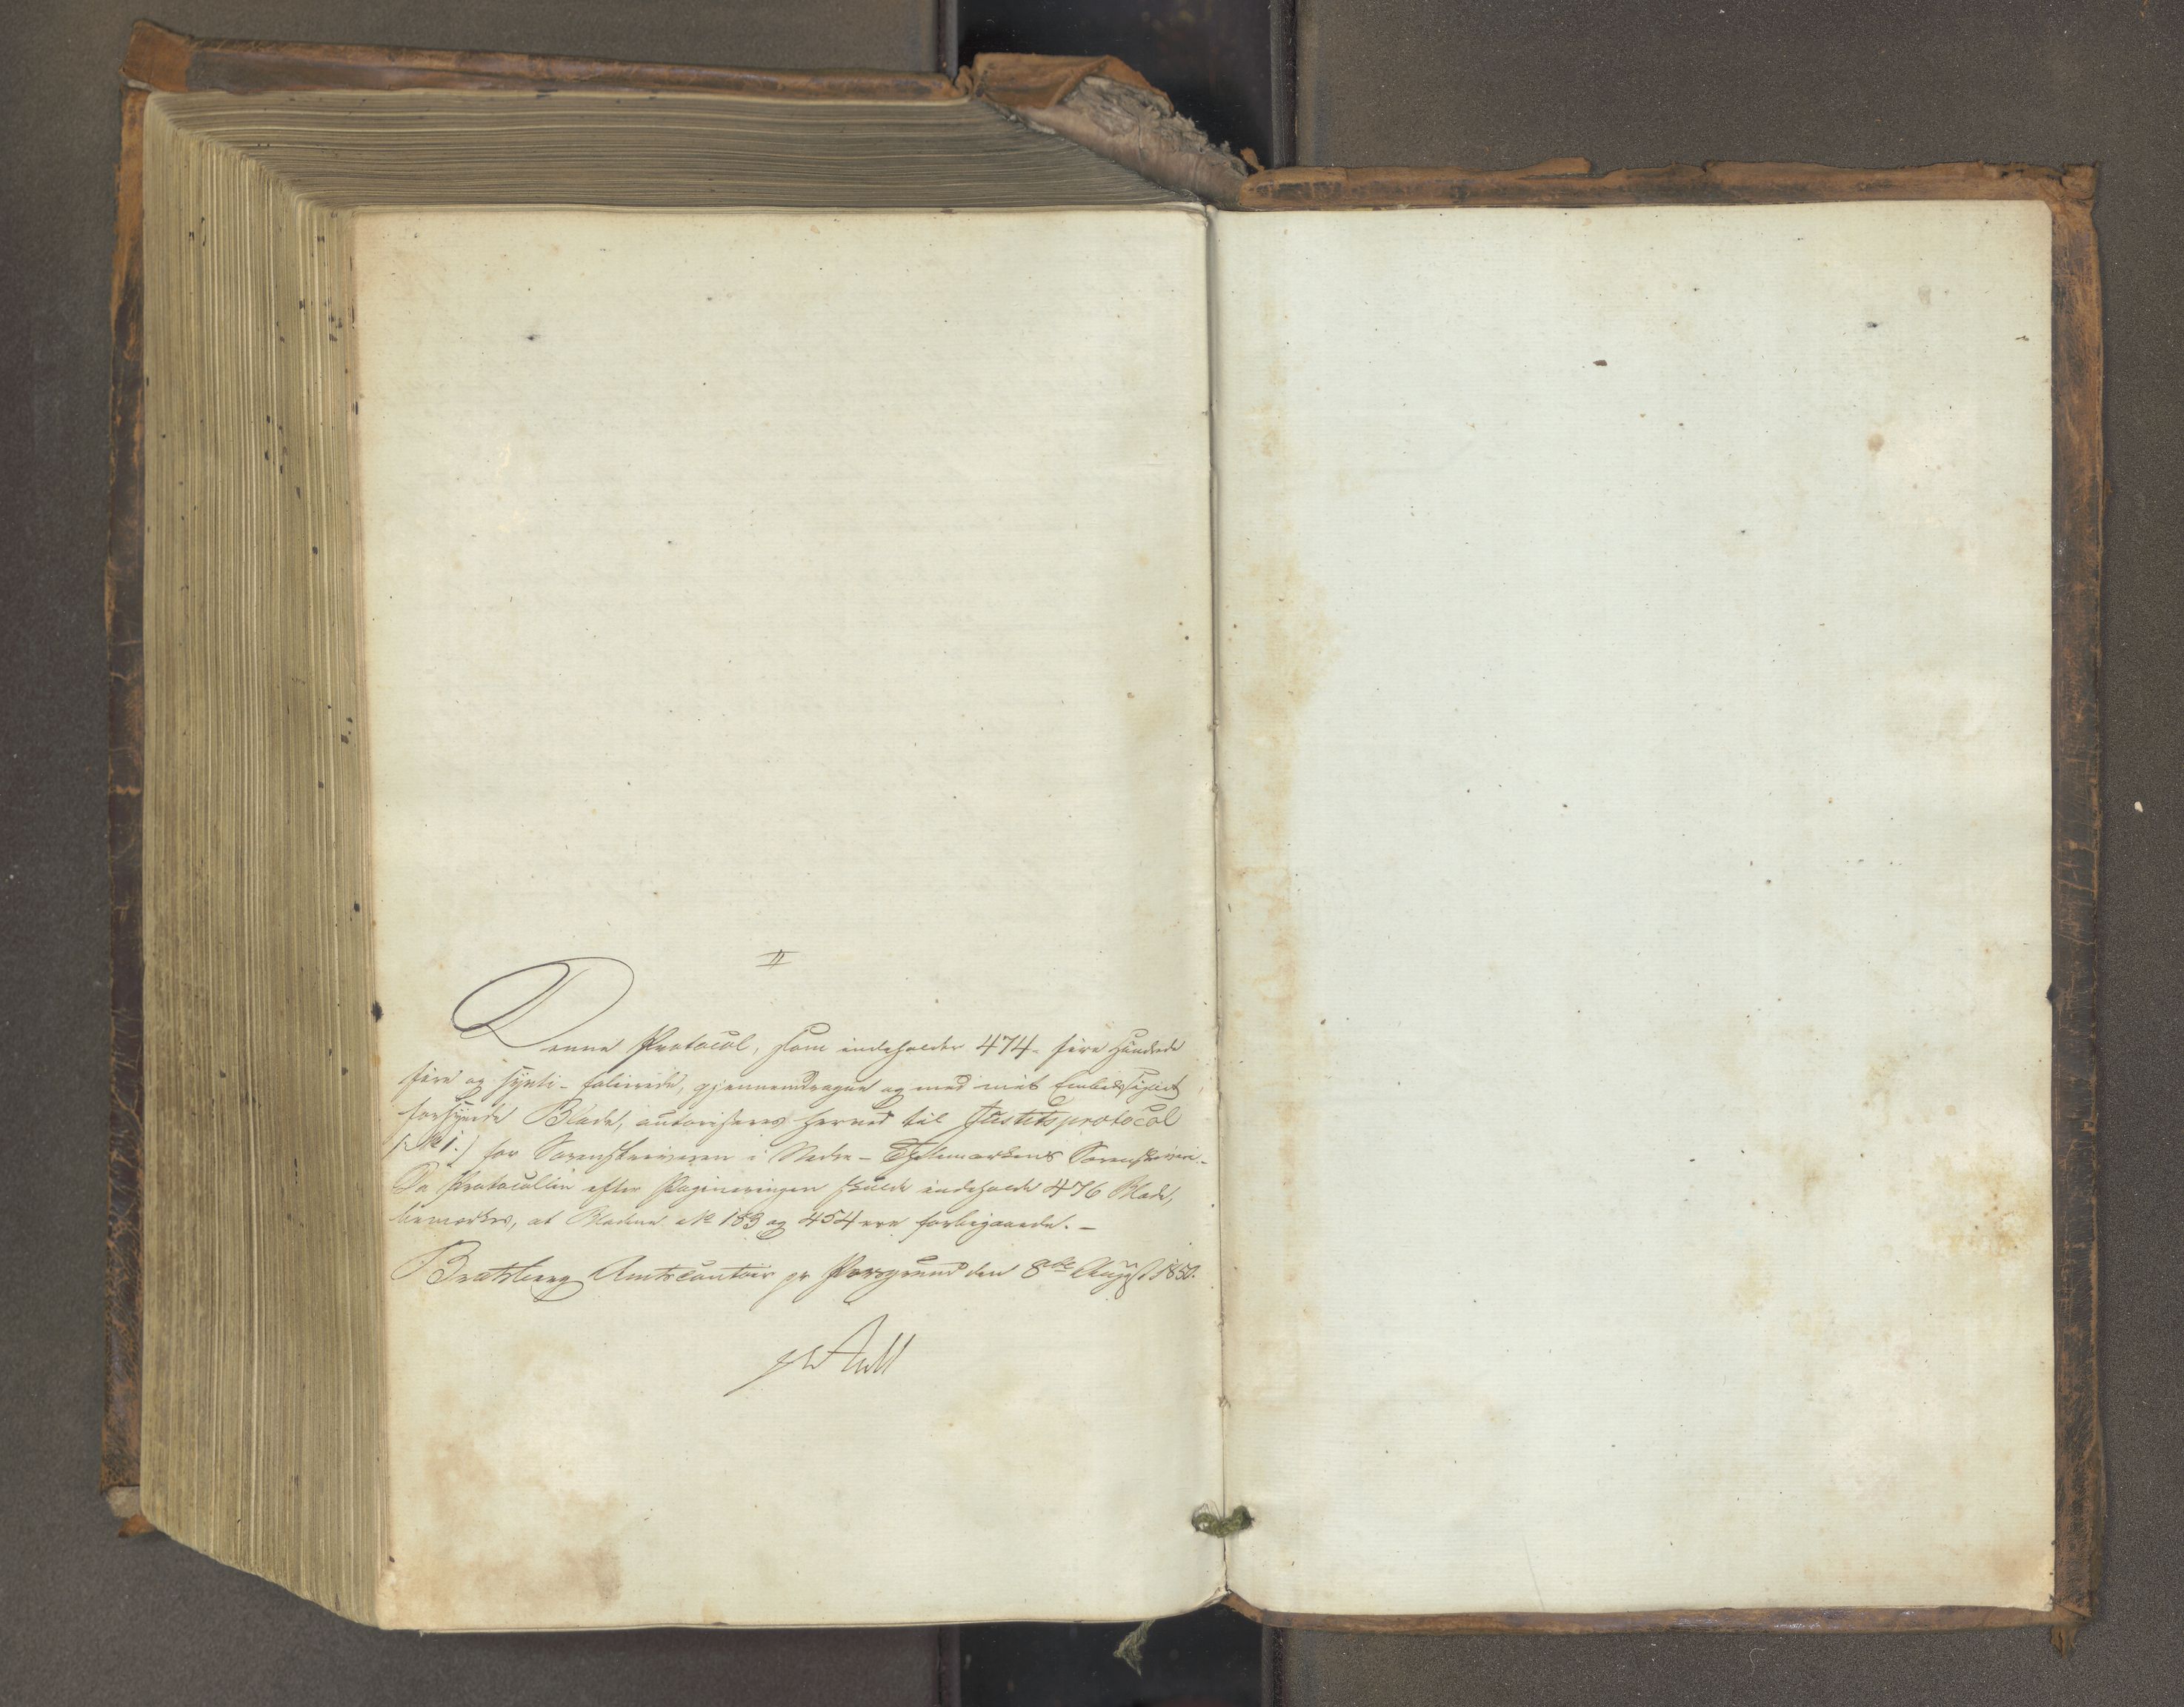 II
Denne Protocol, som indeholder 474 - fire Hundrede
fire og sytti - folierede, gjennemdragne og med mit Embedssignet
forsynede Blade, autoriseres herved til Justitsprotocol
/: № 1 :/ for Sorenskriveren i Nedre - Thelemarkens Sorenskriveri. -
Da Protocollen efter Pagineringen skulde indeholde 476 Blade,
bemærkes, at Bladene № 183 og 454 ere forbigaaede. -
Bratsberg Amtscontoir pr Porsgrund den 8de August 1850.
Aall